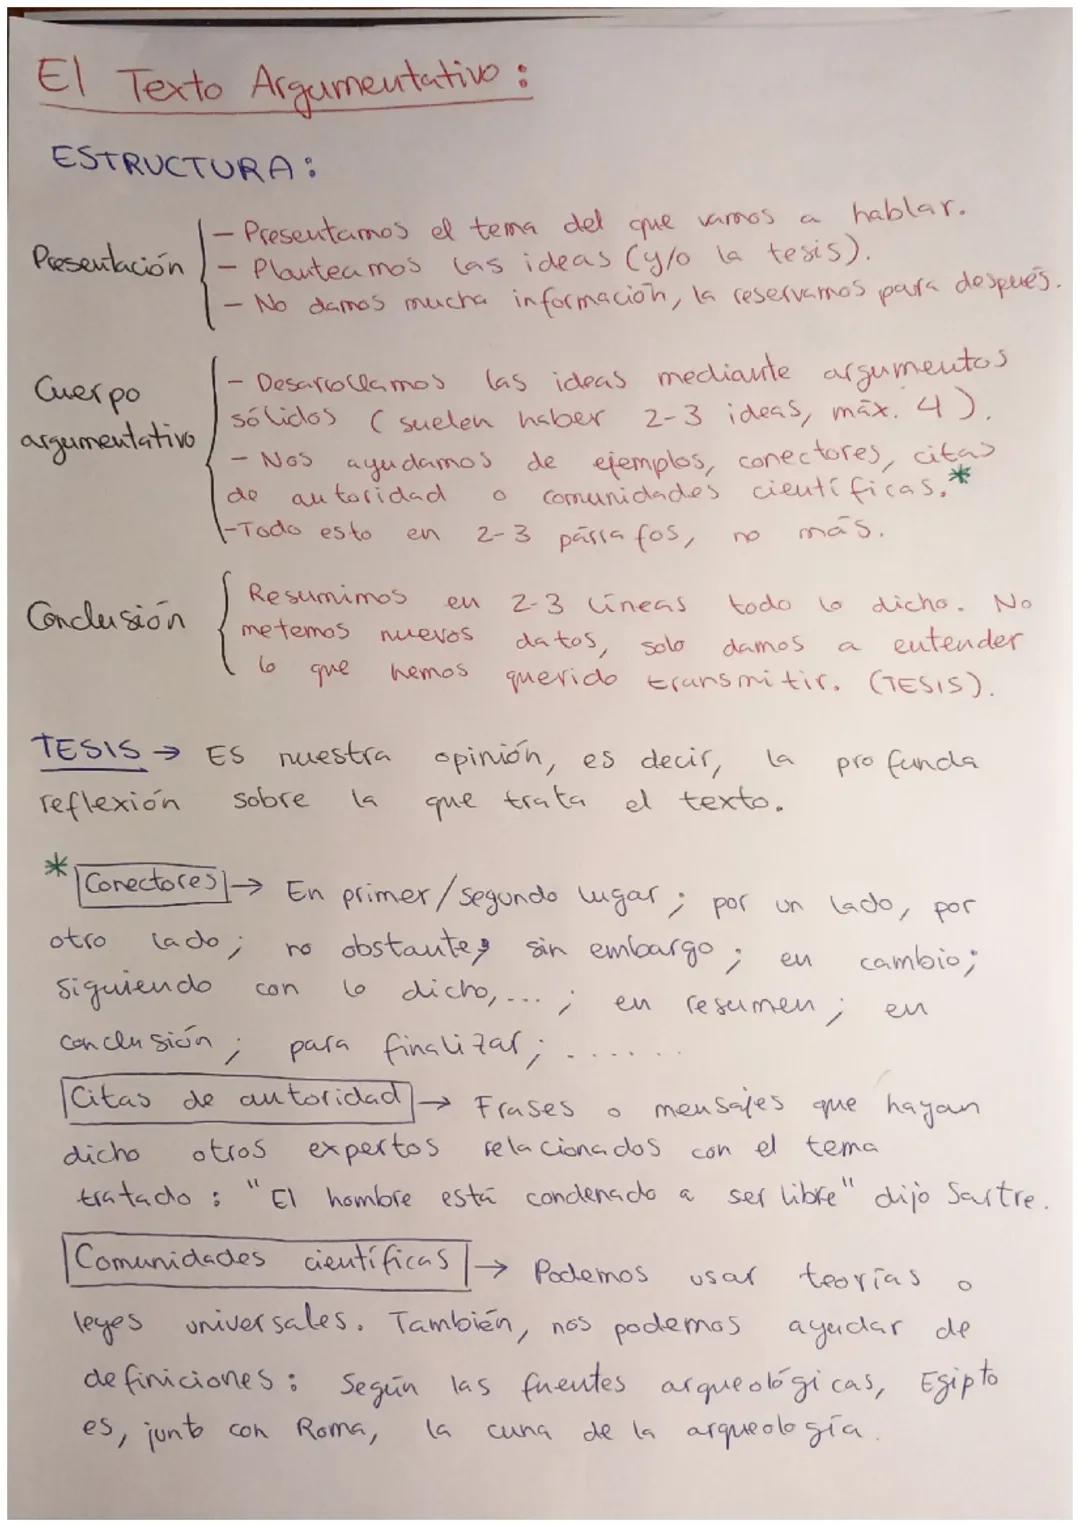 El Texto Argumentativo :
ESTRUCTURA :
Presentación
- Presentamos el tema del que vamos a hablar.
- Planteamos las ideas (y/o la tesis).
- No damos mucha información, la reservamos para después.
Cuerpo
argumentativo
- Desarrollamos las ideas mediante argumentos
sólidos ( suelen haber 2-3 ideas, máx. 4 ).
- Nos ayudamos de ejemplos, conectores, citas
de autoridad o comunidades científicas. *
- Todo esto en 2-3 párrafos, no más.
Conclusión
Resumimos en 2-3 líneas todo lo dicho. No
metemos nuevos datos, solo damos a entender
lo que hemos querido transmitir. (TESIS).
TESIS → ES nuestra opinión, es decir, la profunda
reflexión sobre la que trata el texto.
* Conectores → En primer/segundo lugar ; por un lado, por
otro lado ; no obstante ; sin embargo ; en cambio ;
siguiendo con lo dicho, ... ; en resumen ; en
conclusión ; para finalizar ; ......
Citas de autoridad → Frases o mensajes que hayan
dicho otros expertos relacionados con el tema
tratado : "El hombre está condenado a ser libre" dijo Sartre.
Comunidades científicas → Podemos usar teorías o
leyes universales. También, nos podemos ayudar de
definiciones : Según las fuentes arqueológicas, Egipto
es, junto con Roma, la cuna de la arqueología.